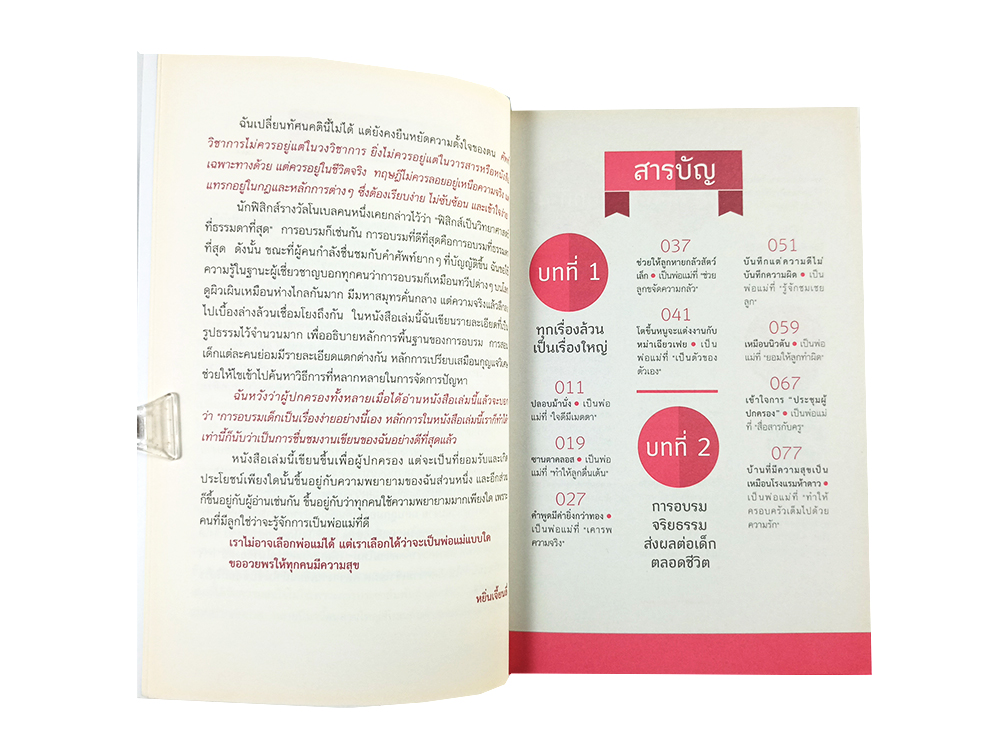 ฉันเปลี่ยนทัศนคตินี้ไม่ได้ แต่ยังคงยืนหยัดความตั้งใจของตน
วิชาการไม่ควรอยู่แต่ในวงวิชาการ ยิ่งไม่ควรอยู่แต่ในวารสารหรือหนังสือ
เฉพาะทางด้วย แต่ควรอยู่ในชีวิตจริง ทฤษฎีไม่ควรลอยอยู่เหนือความจริง
แทรกอยู่ในกฎและหลักการต่างๆ ซึ่งต้องเรียบง่าย ไม่ซับซ้อน และเข้าใจง่าย
นักฟิสิกส์รางวัลโนเบลคนหนึ่งเคยกล่าวไว้ว่า "ฟิสิกส์เป็นวิทยาศาสตร์
ที่ธรรมดาที่สุด" การอบรมก็เช่นกัน การอบรมที่ดีที่สุดคือการอบรมที่ธรรมดา
ที่สุด ดังนั้น ขณะที่ผู้คนกำลังชื่นชมกับคำศัพท์ยากๆ ที่บัญญัติขึ้น
ความรู้ในฐานะผู้เชี่ยวชาญบอกทุกคนว่าการอบรมก็เหมือนทวีปต่างๆ บนโลก
ดูผิวเผินเหมือนห่างไกลกันมาก มีมหาสมุทรคั่นกลาง แต่ความจริงแล้วลึกลง
ไปเบื้องล่างล้วนเชื่อมโยงถึงกัน ในหนังสือเล่มนี้ฉันเขียนรายละเอียดที่เป็น
รูปธรรมไว้จำนวนมาก เพื่ออธิบายหลักการพื้นฐานของการอบรม
เด็กแต่ละคนย่อมมีรายละเอียดแตกต่างกัน หลักการเปรียบเสมือนกุญแจวิเศษ
ช่วยให้ไขเข้าไปค้นหาวิธีการที่หลากหลายในการจัดการปัญหา
ฉันหวังว่าผู้ปกครองทั้งหลายเมื่อได้อ่านหนังสือเล่มนี้แล้วจะบอก
ว่า "การอบรมเด็กเป็นเรื่องง่ายอย่างนี้เอง หลักการในหนังสือเล่มนี้เราก็ทำได้"
เท่านี้ก็นับว่าเป็นการชื่นชมงานเขียนของฉันอย่างดีที่สุดแล้ว
หนังสือเล่มนี้เขียนขึ้นเพื่อผู้ปกครอง แต่จะเป็นที่ยอมรับและเกิด
ประโยชน์เพียงใดนั้นขึ้นอยู่กับความพยายามของฉันส่วนหนึ่ง และอีกส่วน
ก็ขึ้นอยู่กับผู้อ่านเช่นกัน ขึ้นอยู่กับว่าทุกคนใช้ความพยายามมากเพียงใด เพราะ
คนที่มีลูกใช่ว่าจะรู้จักการเป็นพ่อแม่ที่ดี
เราไม่อาจเลือกพ่อแม่ได้ แต่เราเลือกได้ว่าจะเป็นพ่อแม่แบบใด
ขออวยพรให้ทุกคนมีความสุข
หยิ่นเจี้ยนลี่
สารบัญ
บทที่ 1
ทุกเรื่องล้วน
เป็นเรื่องใหญ่
011
ปลอบม้านั่ง ● เป็นพ่อ
แม่ที่ "ใจดีมีเมตตา"
019
ซานตาคลอส ● เป็นพ่อ
แม่ที่ "ทำให้ลูกตื่นเต้น"
027
คำพูดมีค่ายิ่งกว่าทอง ●
เป็นพ่อแม่ที่ "เคารพ
ความจริง"
037
ช่วยให้ลูกหายกลัวสัตว์
เล็ก ● เป็นพ่อแม่ที่ "ช่วย
ลูกขจัดความกลัว"
041
โตขึ้นหนูจะแต่งงานกับ
หม่าเฉียวเฟย ● เป็น
พ่อแม่ที่ "เป็นตัวของ
ตัวเอง"
บทที่ 2
การอบรม
จริยธรรม
ส่งผลต่อเด็ก
ตลอดชีวิต
051
บันทึกแต่ความดีไม่
บันทึกความผิด ● เป็น
พ่อแม่ที่ "รู้จักชมเชย
ลูก"
059
เหมือนนิวตัน ● เป็นพ่อ
แม่ที่ "ยอมให้ลูกทำผิด"
067
เข้าใจการ "ประชุมผู้
ปกครอง" ● เป็นพ่อแม่
ที่ "สื่อสารกับครู"
077
บ้านที่มีความสุขเป็น
เหมือนโรงแรมห้าดาว ●
เป็นพ่อแม่ที่ "ทำให้
ครอบครัวเต็มไปด้วย
ความรัก"